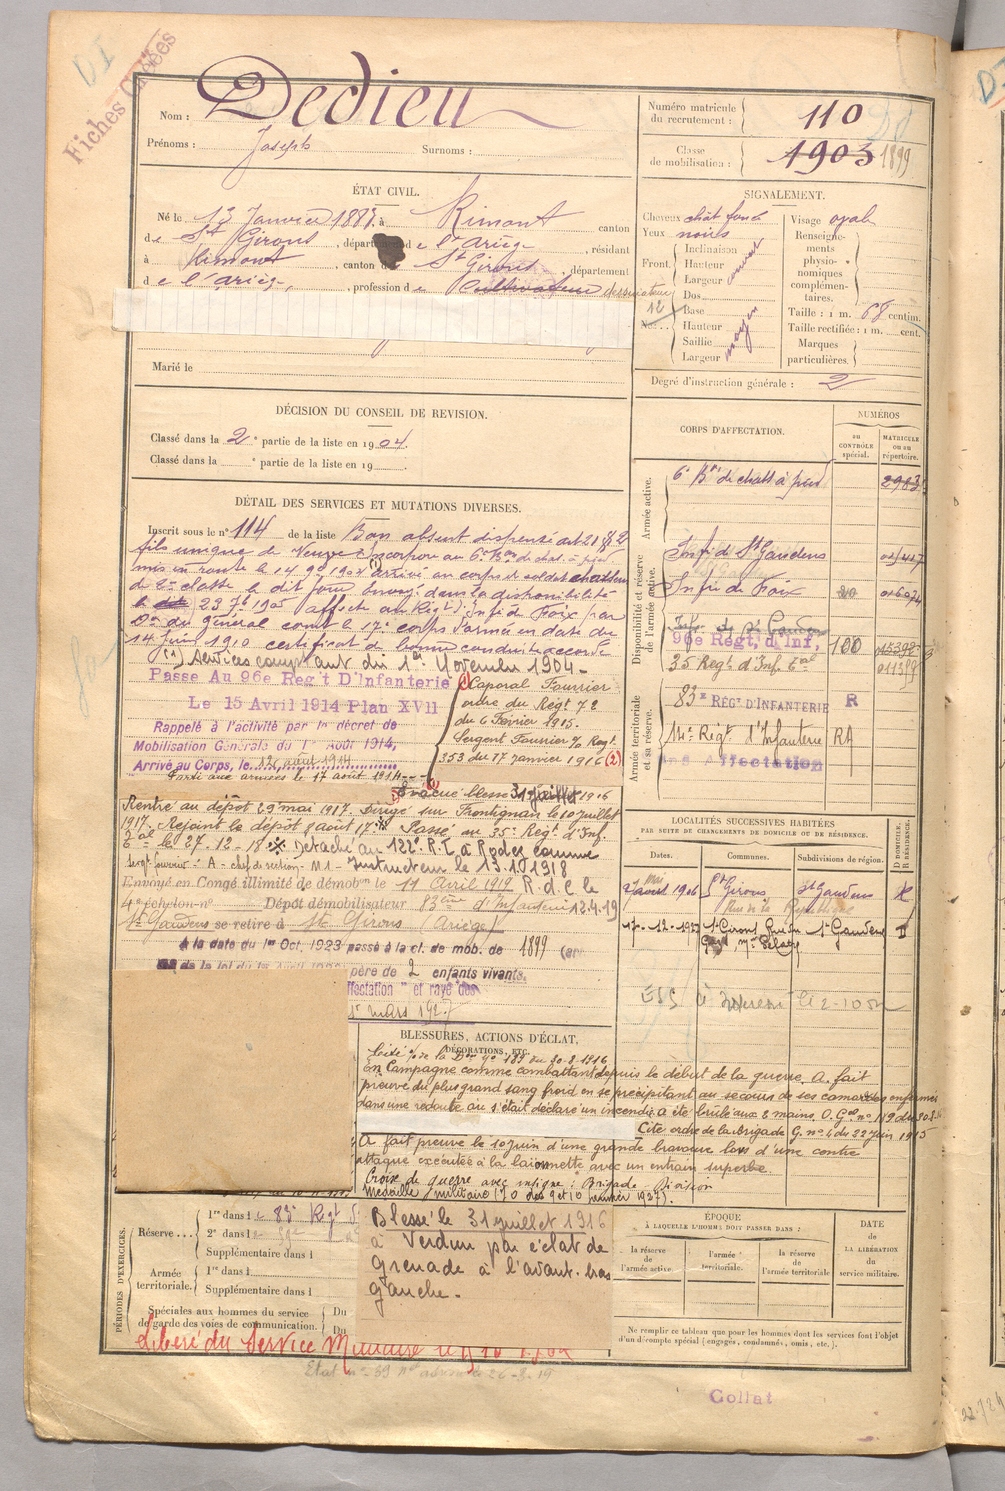 DI
Fiches Créées
Nom : Dedieu
Prénoms : Joseph Surnoms :
Numéro matricule du recrutement : 110
Classe de mobilisation : 1903 1899
ÉTAT CIVIL.
Né le 13 Janvier 1883, à Rimont canton
de St Girons, département de l'Ariège, résidant
à Rimont, canton de St Girons, département
de l'Ariège, profession de Cultivateur dessinateur
Marié le
SIGNALEMENT.
Cheveux chât foncé
Yeux noirs
Front. Inclinaison
Hauteur
Largeur
Nez. Dos
Base
Hauteur
Saillie
Largeur
moyen
12
Visage ovale
Renseignements physionomiques complémentaires.
Taille : 1 m. 68 centim.
Taille rectifiée : 1 m. cent.
Marques particulières.
Degré d'instruction générale : 2
DÉCISION DU CONSEIL DE REVISION.
Classé dans la 2e partie de la liste en 1904.
Classé dans la e partie de la liste en 19
CORPS D'AFFECTATION.
NUMÉROS
au CONTRÔLE spécial.
MATRICULE ou au répertoire.
Armée active.
6e Bon de chass à pied 2983
Disponibilité et réserve de l'armée active.
Infie de St Gaudens
Infie de Foix
96e Régt, d'Inf, 100
35 Régt d'Inf. Cal
Armée territoriale et sa réserve.
83e RÉGT D'INFANTERIE R
14e Régt d'Infanterie RA
Affectation
DÉTAIL DES SERVICES ET MUTATIONS DIVERSES.
Inscrit sous le n° 114 de la liste Bon absent dispensé art 21
fils unique de Veuve. Incorporé au 6e Bon de chas. à pied
mis en route le 14 9bre 1904 arrivé au corps et soldat chasseur
de 2e classe le dit jour. Envoyé dans la disponibilité
le 23 7bre 1905 affecté au Régt d'Infie de Foix par
Don du général comt le 17e corps d'armée en date du
14 Juin 1910 certificat de bonne conduite accordé
(1) Services comptant du 1er Novembre 1904
Passé Au 96e Reg't D'Infanterie
Le 15 Avril 1914 Plan XVII
Rappelé à l'activité par le décret de
Mobilisation Générale du 1er Août 1914,
Arrivé au Corps, le 12 août 1914
Parti aux armées le 17 août 1914
Caporal Fourrier
ordre du Régt 72
du 6 Février 1915.
Sergent Fourrier o/ Régt
353 du 17 janvier 1916 (2)
Évacué blessé 31 juillet 1916
Rentré au dépôt 29 mai 1917. Dirigé sur Frontignan le 10 juillet
1917. Rejoint le dépôt 9 août 17. Passé au 35e Régt d'Inf.
Cal le 27-12-18 Détaché au 122e R.I. à Rodez comme
Instructeur le 13.10.1918
Envoyé en Congé illimité de démobon le 11 Avril 1919 R.d.C le
4e échelon n° Dépôt démobilisateur 83ème d'Infanterie 12.4.19
St Gaudens se retire à St Girons (Ariège)
A la date du 1er Oct. 1923 passé à la cl. de mob. de 1899
père de 2 enfants vivants.
ffectation " et rayé des
1er mars 1927
LOCALITÉS SUCCESSIVES HABITÉES
PAR SUITE DE CHANGEMENTS DE DOMICILE OU DE RÉSIDENCE.
Dates. Communes. Subdivisions de région. D DOMICILE. R RÉSIDENCE.
1906 St Girons St Gaudens R
Rue de la République
17-12-1927 St Girons St Gaudens
BLESSURES, ACTIONS D'ÉCLAT,
DÉCORATIONS, ETC.
Cité o/ de la Don n° 189 du 30-8-1916
En Campagne comme combattant depuis le début de la guerre. A fait
preuve du plus grand sang froid en se précipitant au secours de ses camarades enfermés
dans une redoute où s'était déclaré un incendie. a été brûlé aux 2 mains. O. Gal n° 119 du 30.8.16
Cité ordre de la Brigade G. n° 4 du 22 juin 1915
A fait preuve le 10 juin d'une grande bravoure lors d'une contre
attaque exécutée à la baïonnette avec un entrain superbe.
Croix de guerre avec insigne : Brigade - Division
Médaille militaire (J.O des 9 et 10 janvier 1927).
Blessé le 31 juillet 1916
à Verdun par éclat de
grenade à l'avant-bras
gauche.
PÉRIODES D'EXERCICES.
Réserve ... 1re dans le 83e Régt
2e dans l
Supplémentaire dans l
Armée territoriale. 1re dans l
Supplémentaire dans l
Spéciales aux hommes du service
de garde des voies de communication. Du
Du
Libéré du Service Militaire
ÉPOQUE
À LAQUELLE L'HOMME DOIT PASSER DANS :
la réserve de l'armée active.
l'armée territoriale.
la réserve de l'armée territoriale
DATE de LA LIBÉRATION du service militaire.
Ne remplir ce tableau que pour les hommes dont les services font l'objet
d'un décompte spécial (engagés, condamnés, omis, etc.).
Collat